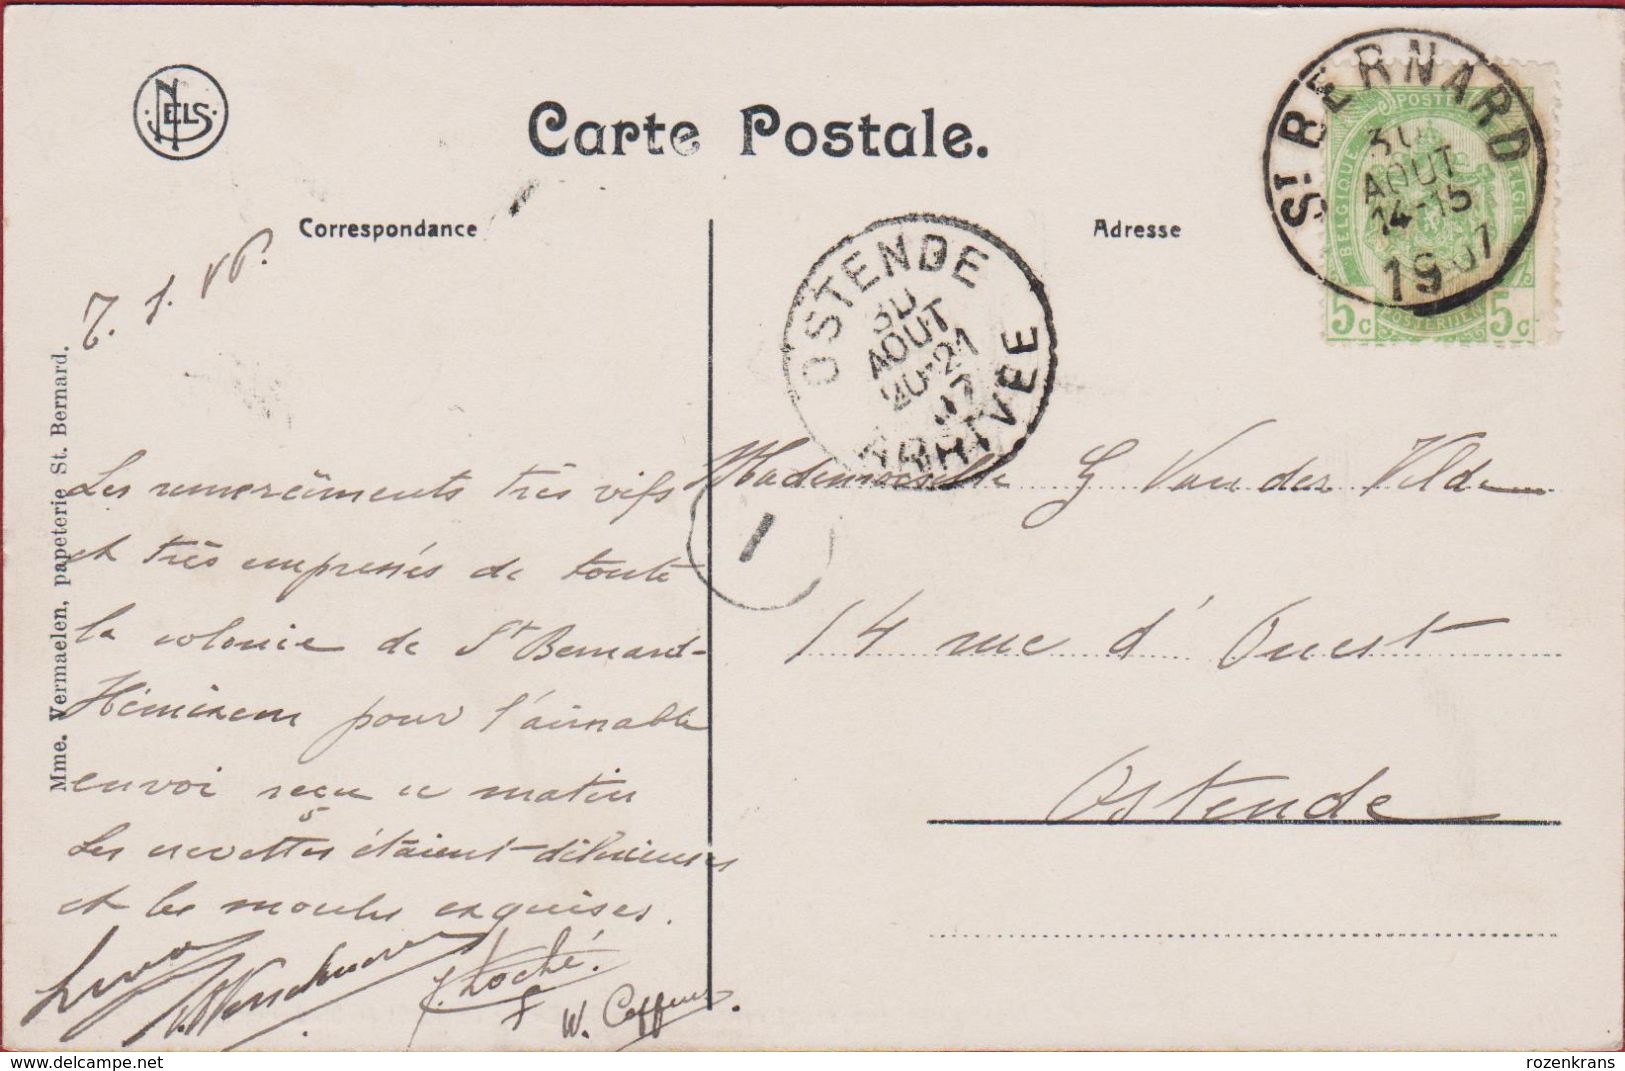 NELS
Carte Postale.
Correspondance
Adresse
St BERNARD
30
AOUT
14-15
1907
POSTE
BELGIQUE
BELGIE
5c POSTERIJEN 5c
OSTENDE
30
AOUT
20-21
07
ARRIVEE
1
Mme. Vermaelen, papeterie St. Bernard.
Les remercîments très vifs
et très empressés de toute
la colonie de St Bernard-
Hémixem pour l'aimable
envoi reçu ce matin
Les crevettes étaient délicieuses
et les moules exquises.
Mademoiselle G Van der Velde
14 rue d'Ouest
Ostende
rozenkrans
delcampe.net